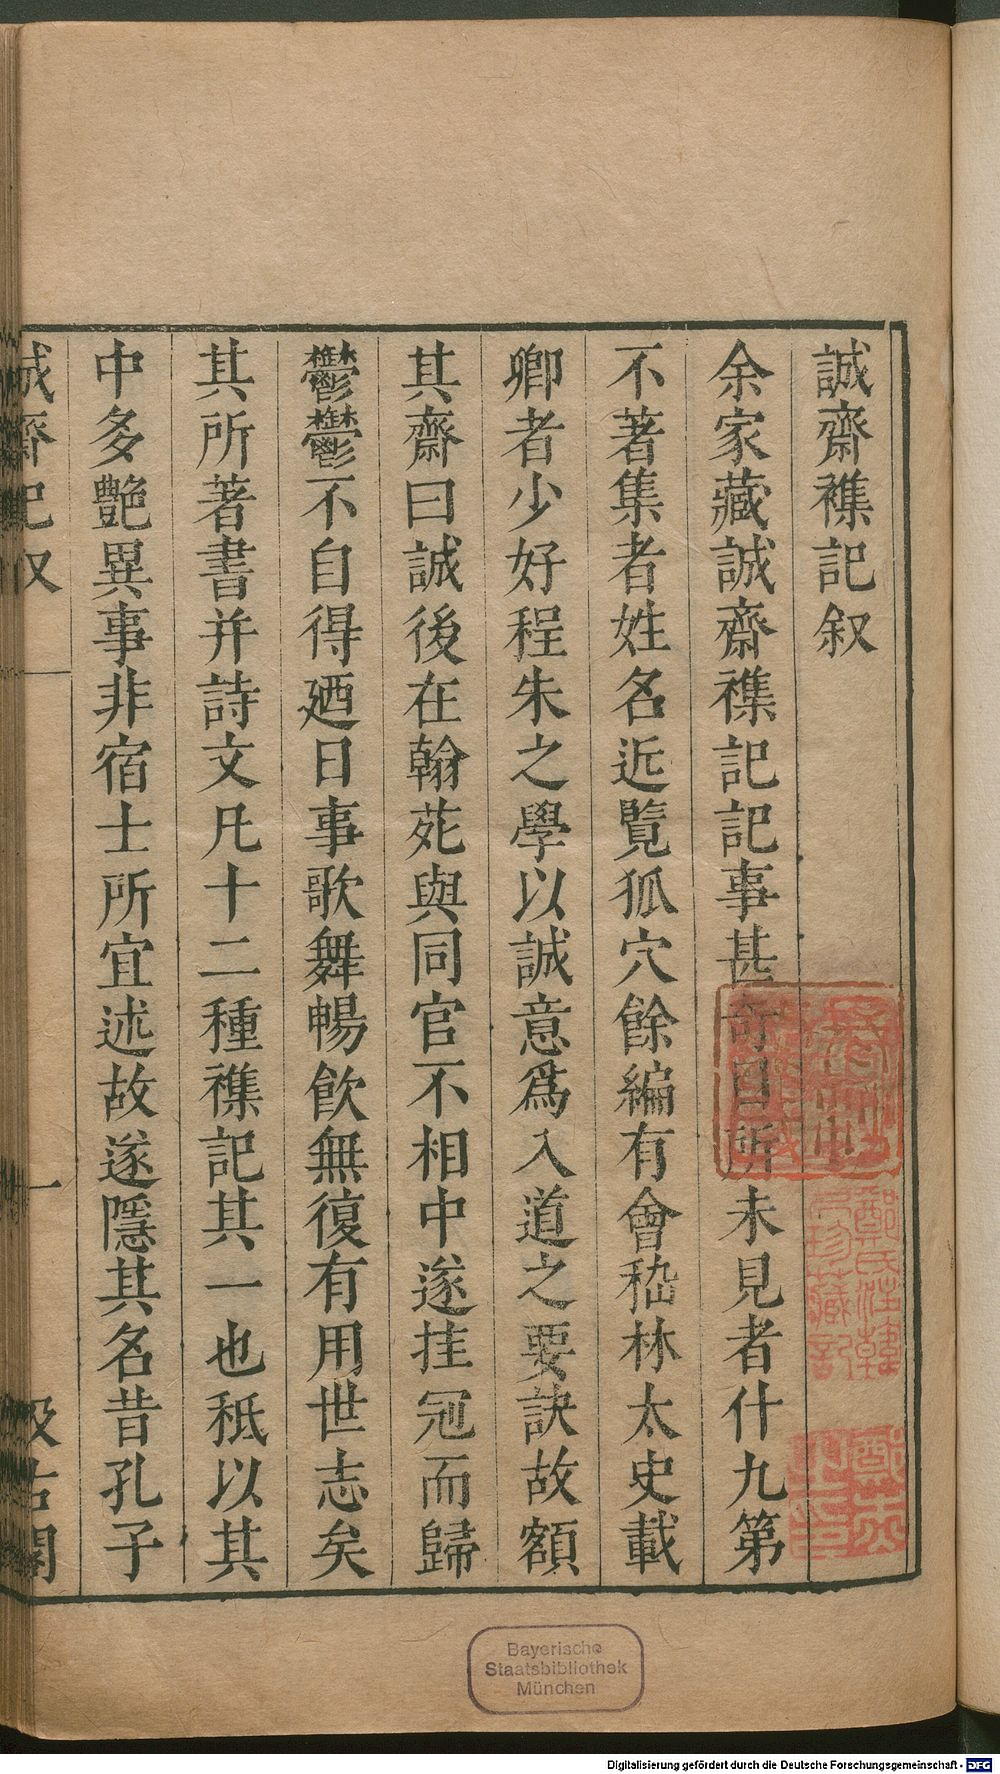 誠齋襍記叙
余家藏誠齋襍記記事甚奇目所未見者什九第
不著集者姓名近覽狐穴餘編有會稽林太史載
卿者少好程朱之學以誠意爲入道之要訣故額
其齋曰誠後在翰苑與同官不相中遂挂冠而歸
鬱鬱不自得廼日事歌舞暢飲無復有用世志矣
其所著書并詩文凡十二種襍記其一也秪以其
中多艶異事非宿士所宜述故遂隱其名昔孔子
誠齋記叙 一 汲古閣
鄭氏注韓
居珍藏記
Bayerische
Staatsbibliothek
München
Digitalisierung gefördert durch die Deutsche Forschungsgemeinschaft - DFG